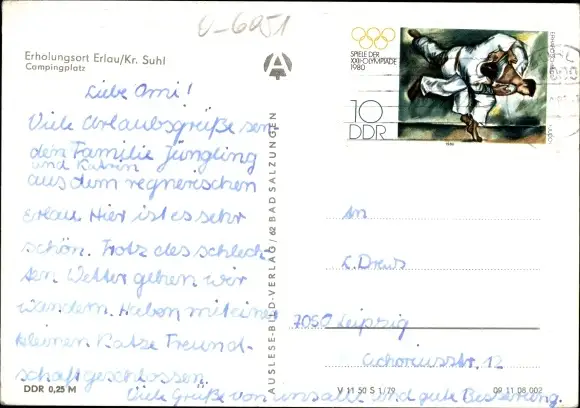 O-6951
Erholungsort Erlau/Kr. Suhl
Campingplatz
Liebe Omi!
Viele Urlaubsgrüße sen
den Familie Jüngling
und Katrin
aus dem regnerischen
Erlau. Hier ist es sehr
schön. Trotz des schlech-
ten Wetter gehen wir
wandern. Haben mit einer
kleinen Katze Freund-
schaft geschlossen.
Viele Grüße von uns allen und gute Besserung.
DDR 0,25 M
AUSLESE-BILD-VERLAG / 62 BAD SALZUNGEN
SPIELE DER
XXII. OLYMPIADE
1980
10
DDR
1980
An
L. Drews
7050 Leipzig
Cichoriusstr. 12
V 11 50 S 1/79
09 11 08 002